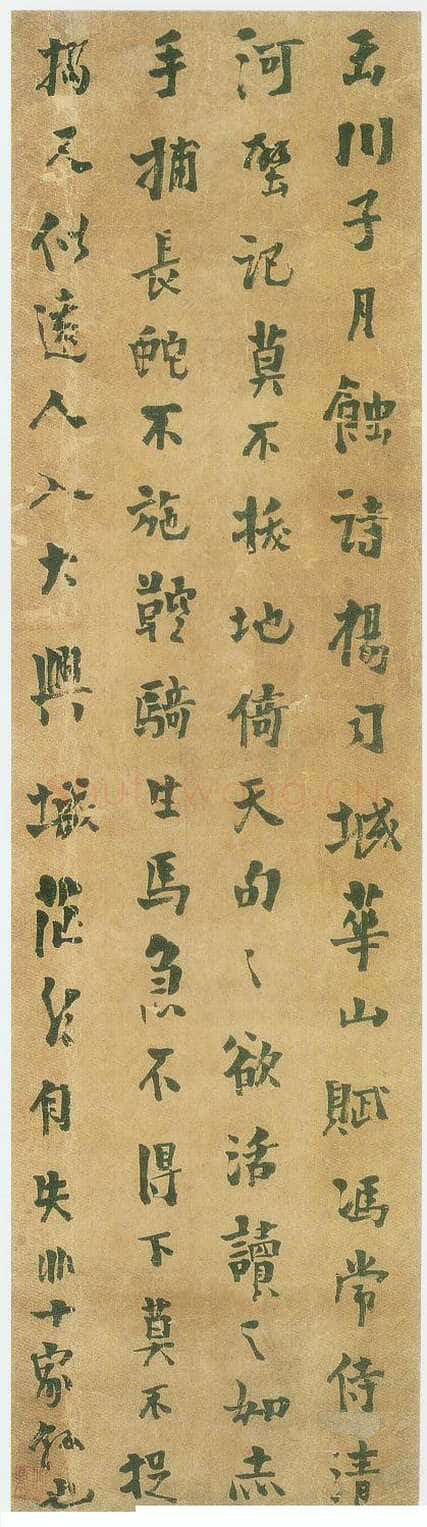 玉川子月蝕詩楊司城華山賦馮常侍清
河壁記莫不拔地倚天句々欲活讀之如赤
手捕長蛇不施鞚騎生馬急不得下莫不捉
搦又似遠人入大興城茫然自失